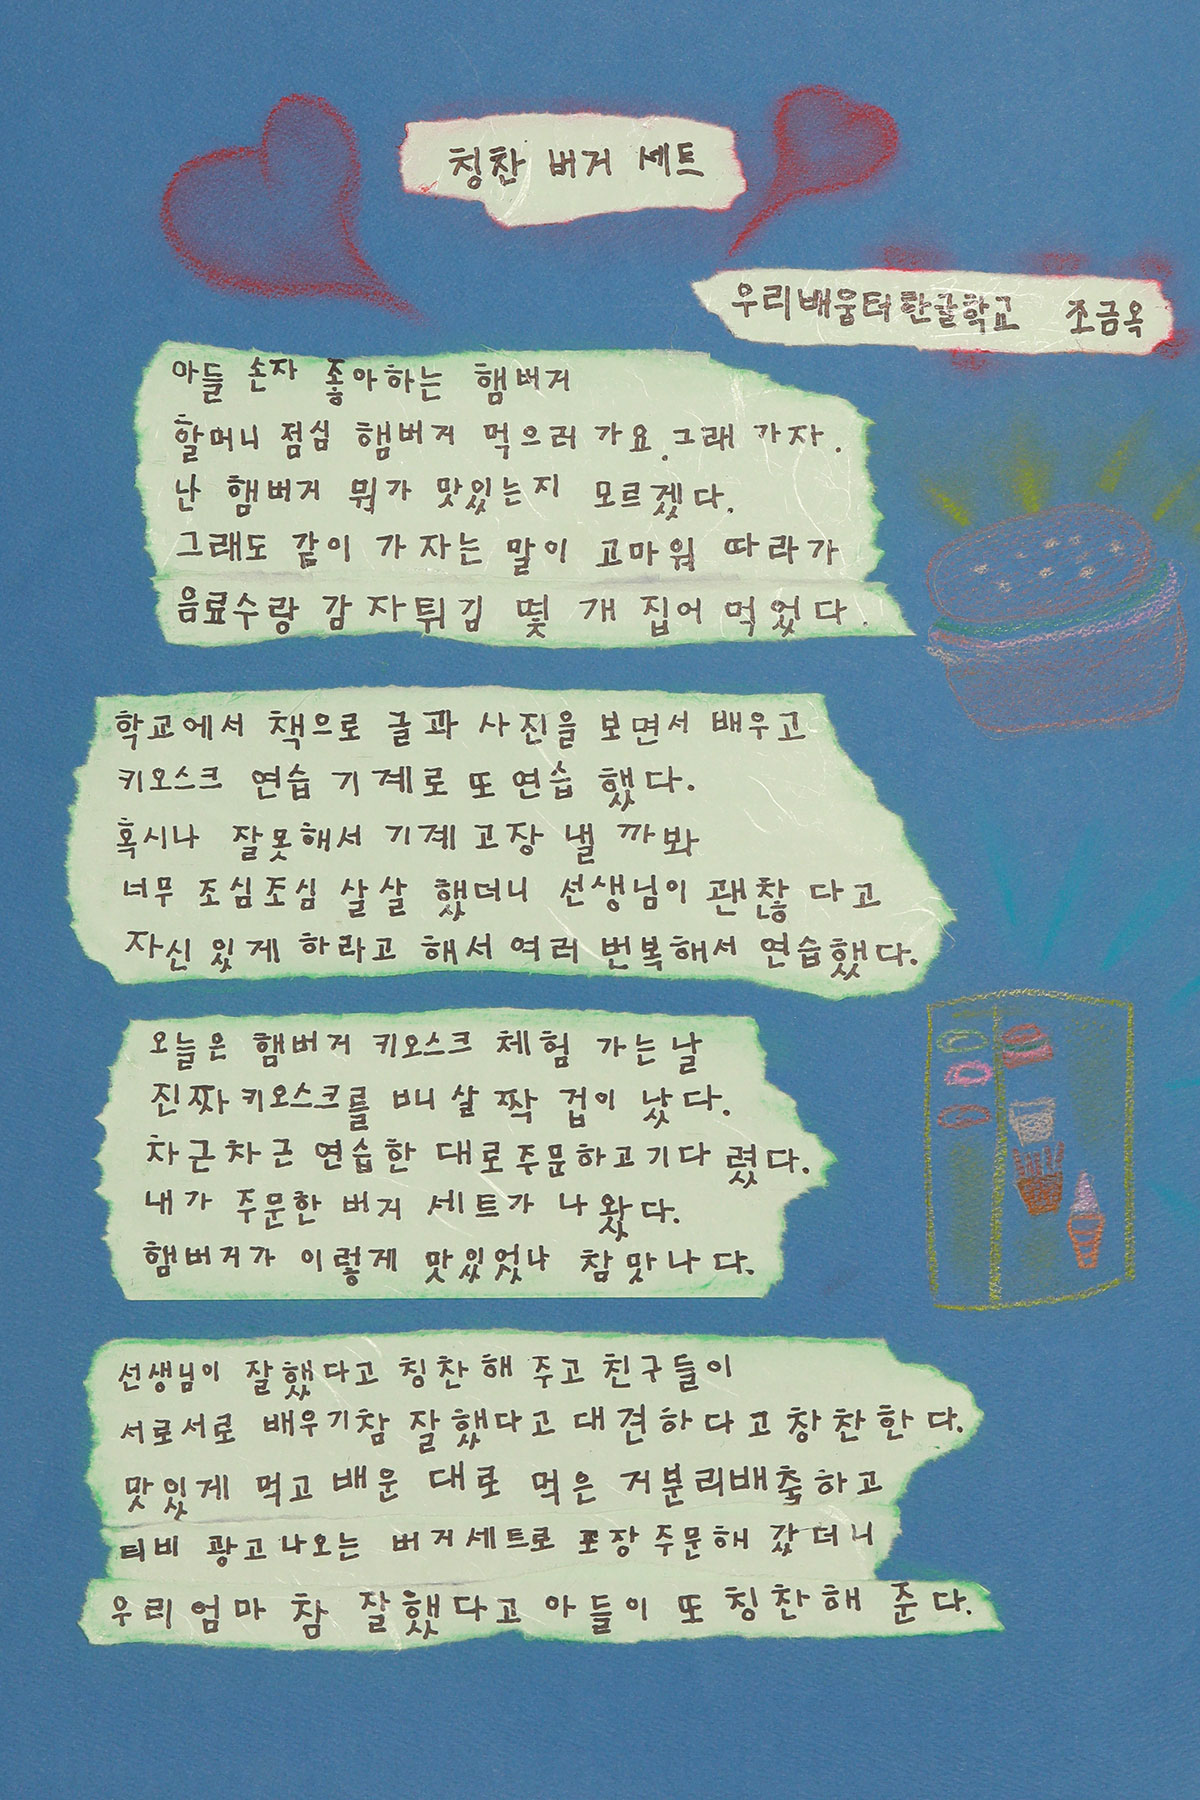 칭찬 버거 세트
우리배움터한글학교 조금옥
아들 손자 좋아하는 햄버거
할머니 점심 햄버거 먹으러 가요. 그래 가자.
난 햄버거 뭐가 맛있는지 모르겠다.
그래도 같이 가자는 말이 고마워 따라가
음료수랑 감자튀김 몇 개 집어 먹었다.
학교에서 책으로 글과 사진을 보면서 배우고
키오스크 연습 기계로 또 연습 했다.
혹시나 잘못해서 기계 고장 낼 까봐
너무 조심조심 살살 했더니 선생님이 괜찮다고
자신 있게 하라고 해서 여러 번복해서 연습했다.
오늘은 햄버거 키오스크 체험 가는날
진짜 키오스크를 보니 살짝 겁이 났다.
차근차근 연습한 대로 주문하고 기다렸다.
내가 주문한 버거 세트가 나왔다.
햄버거가 이렇게 맛있었나 참 맛나다.
선생님이 잘했다고 칭찬해 주고 친구들이
서로서로 배우기참 잘했다고 대견하다고 창찬한다.
맛있게 먹고 배운 대로 먹은 거분리배출하고
티비 광고나오는 버거세트로 포장 주문해 갔더니
우리엄마 참 잘했다고 아들이 또 칭찬해 준다.